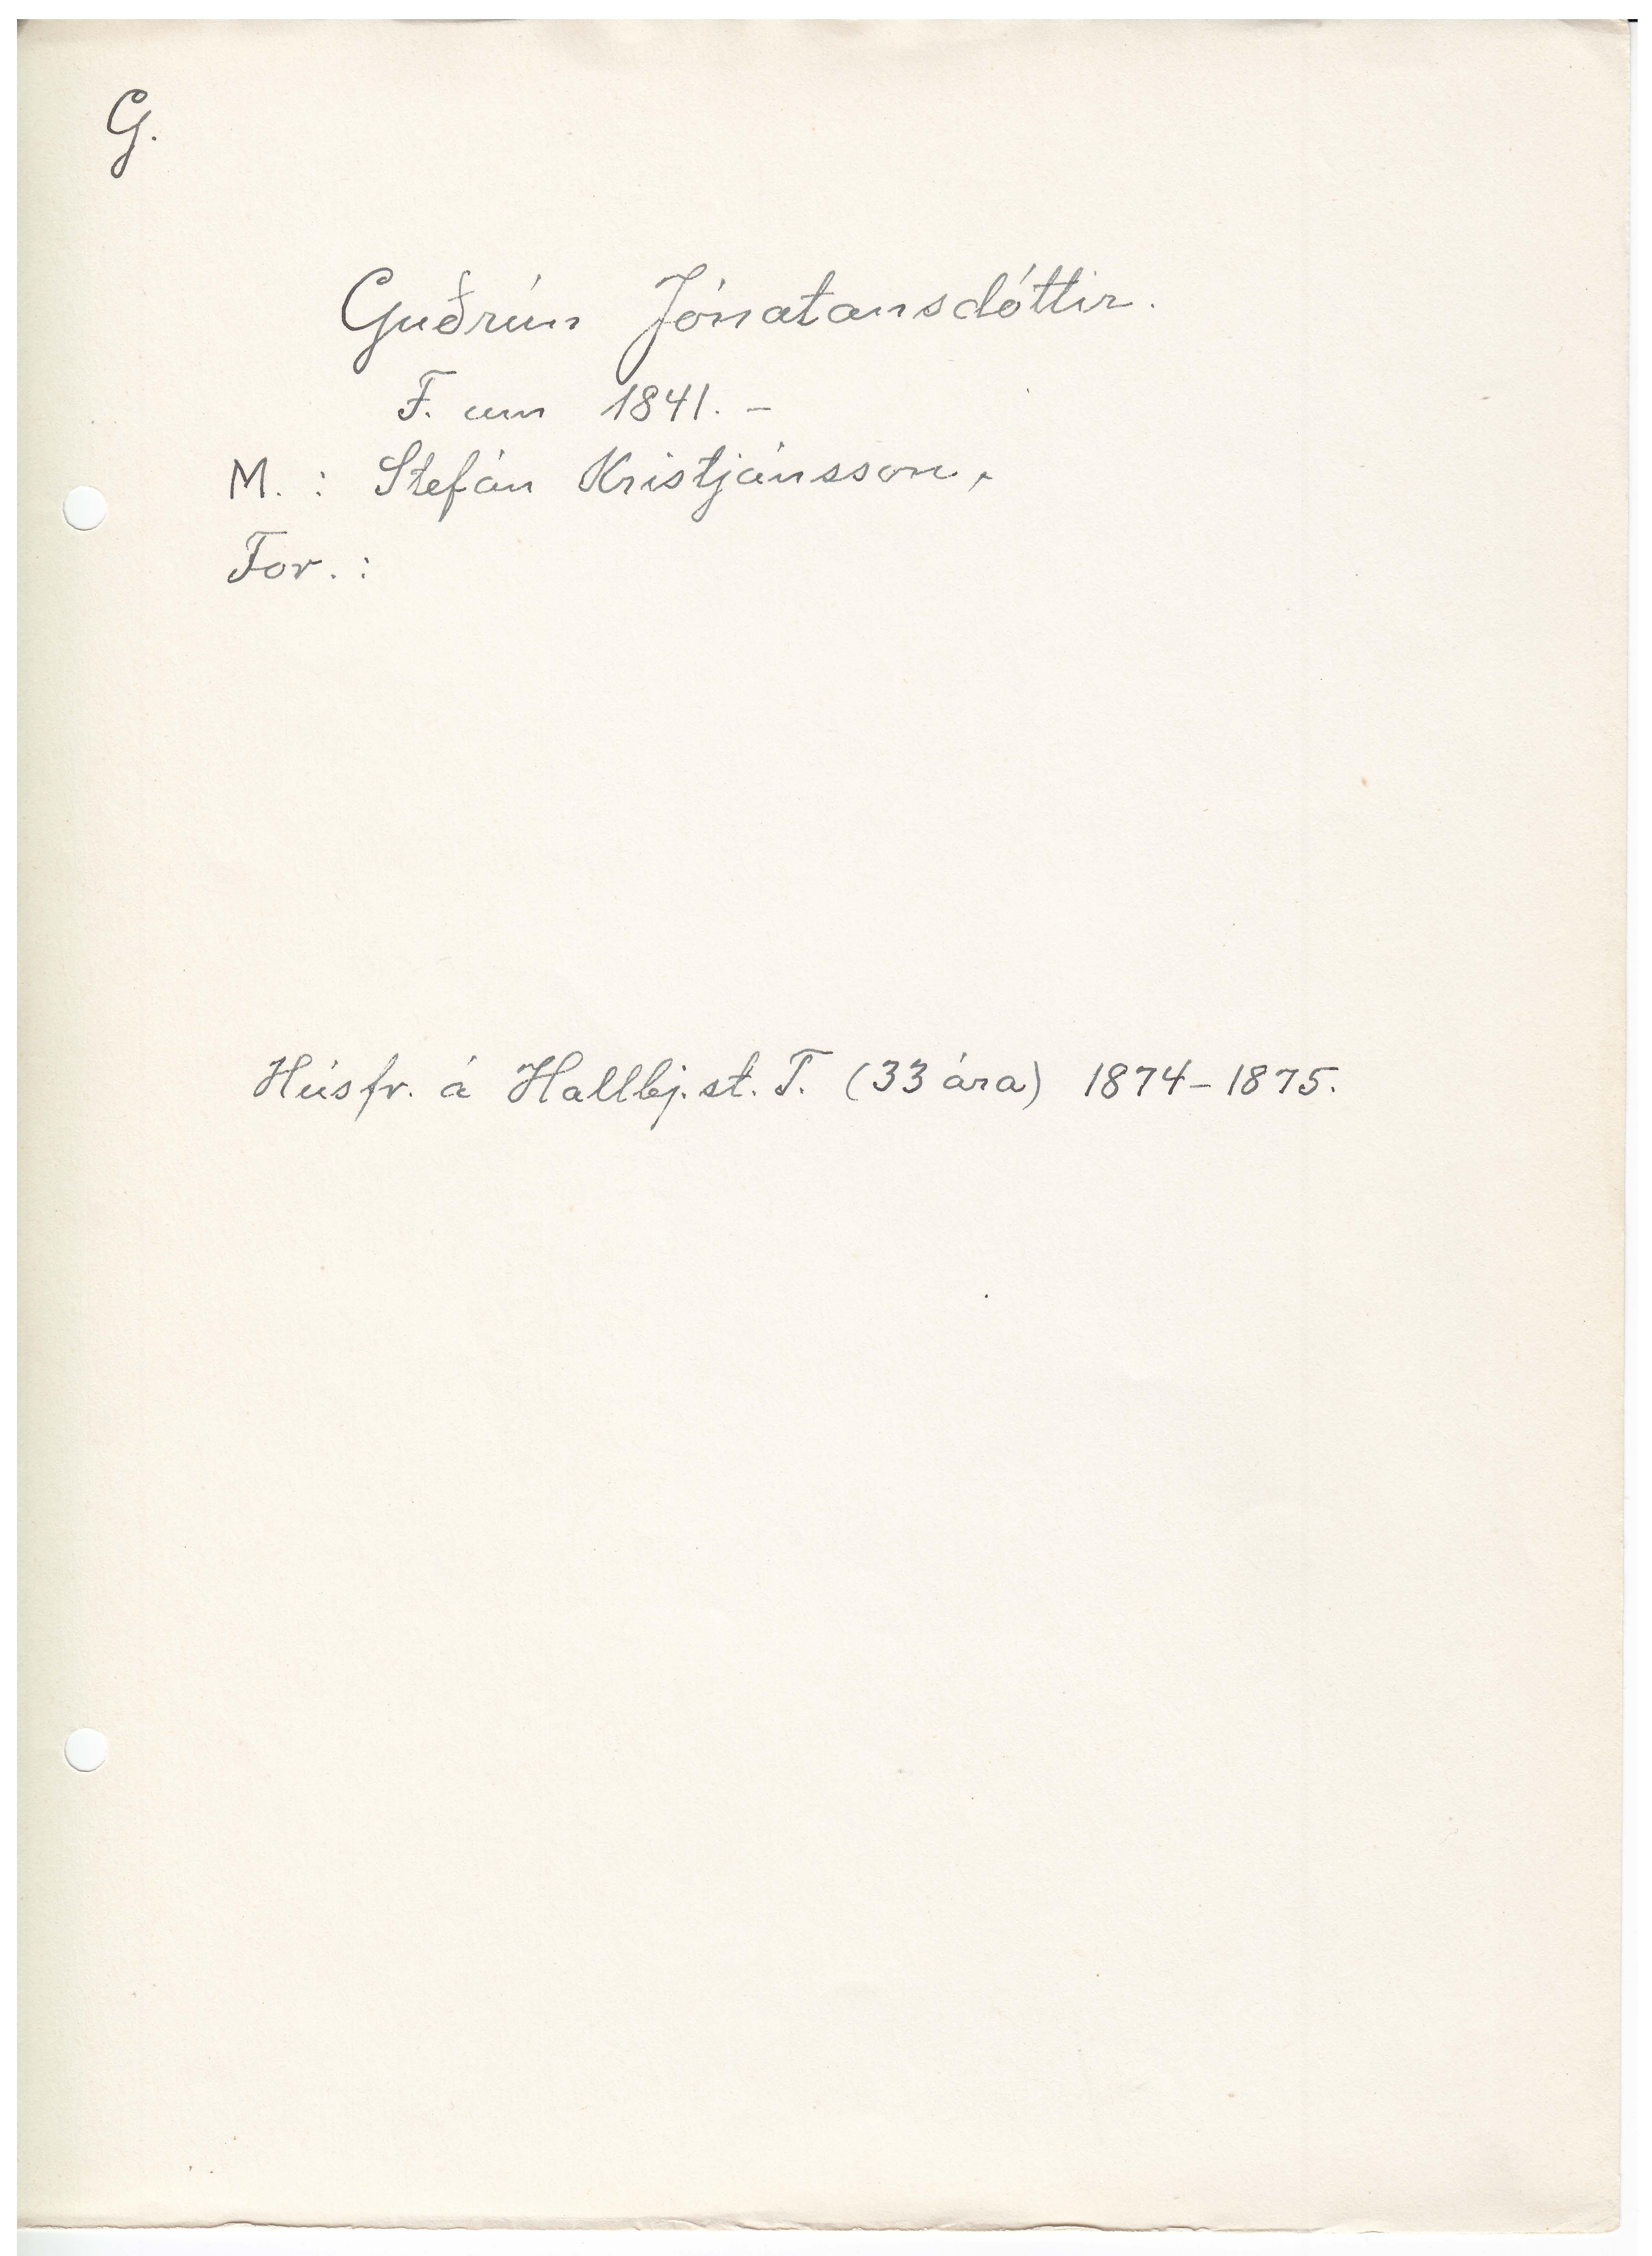 G.
Guðrún Jónatansdóttir.
F. um 1841. -
M. : Stefán Kristjánsson.
For. :
Húsfr. á Hallbj.st. T. (33 ára) 1874-1875.